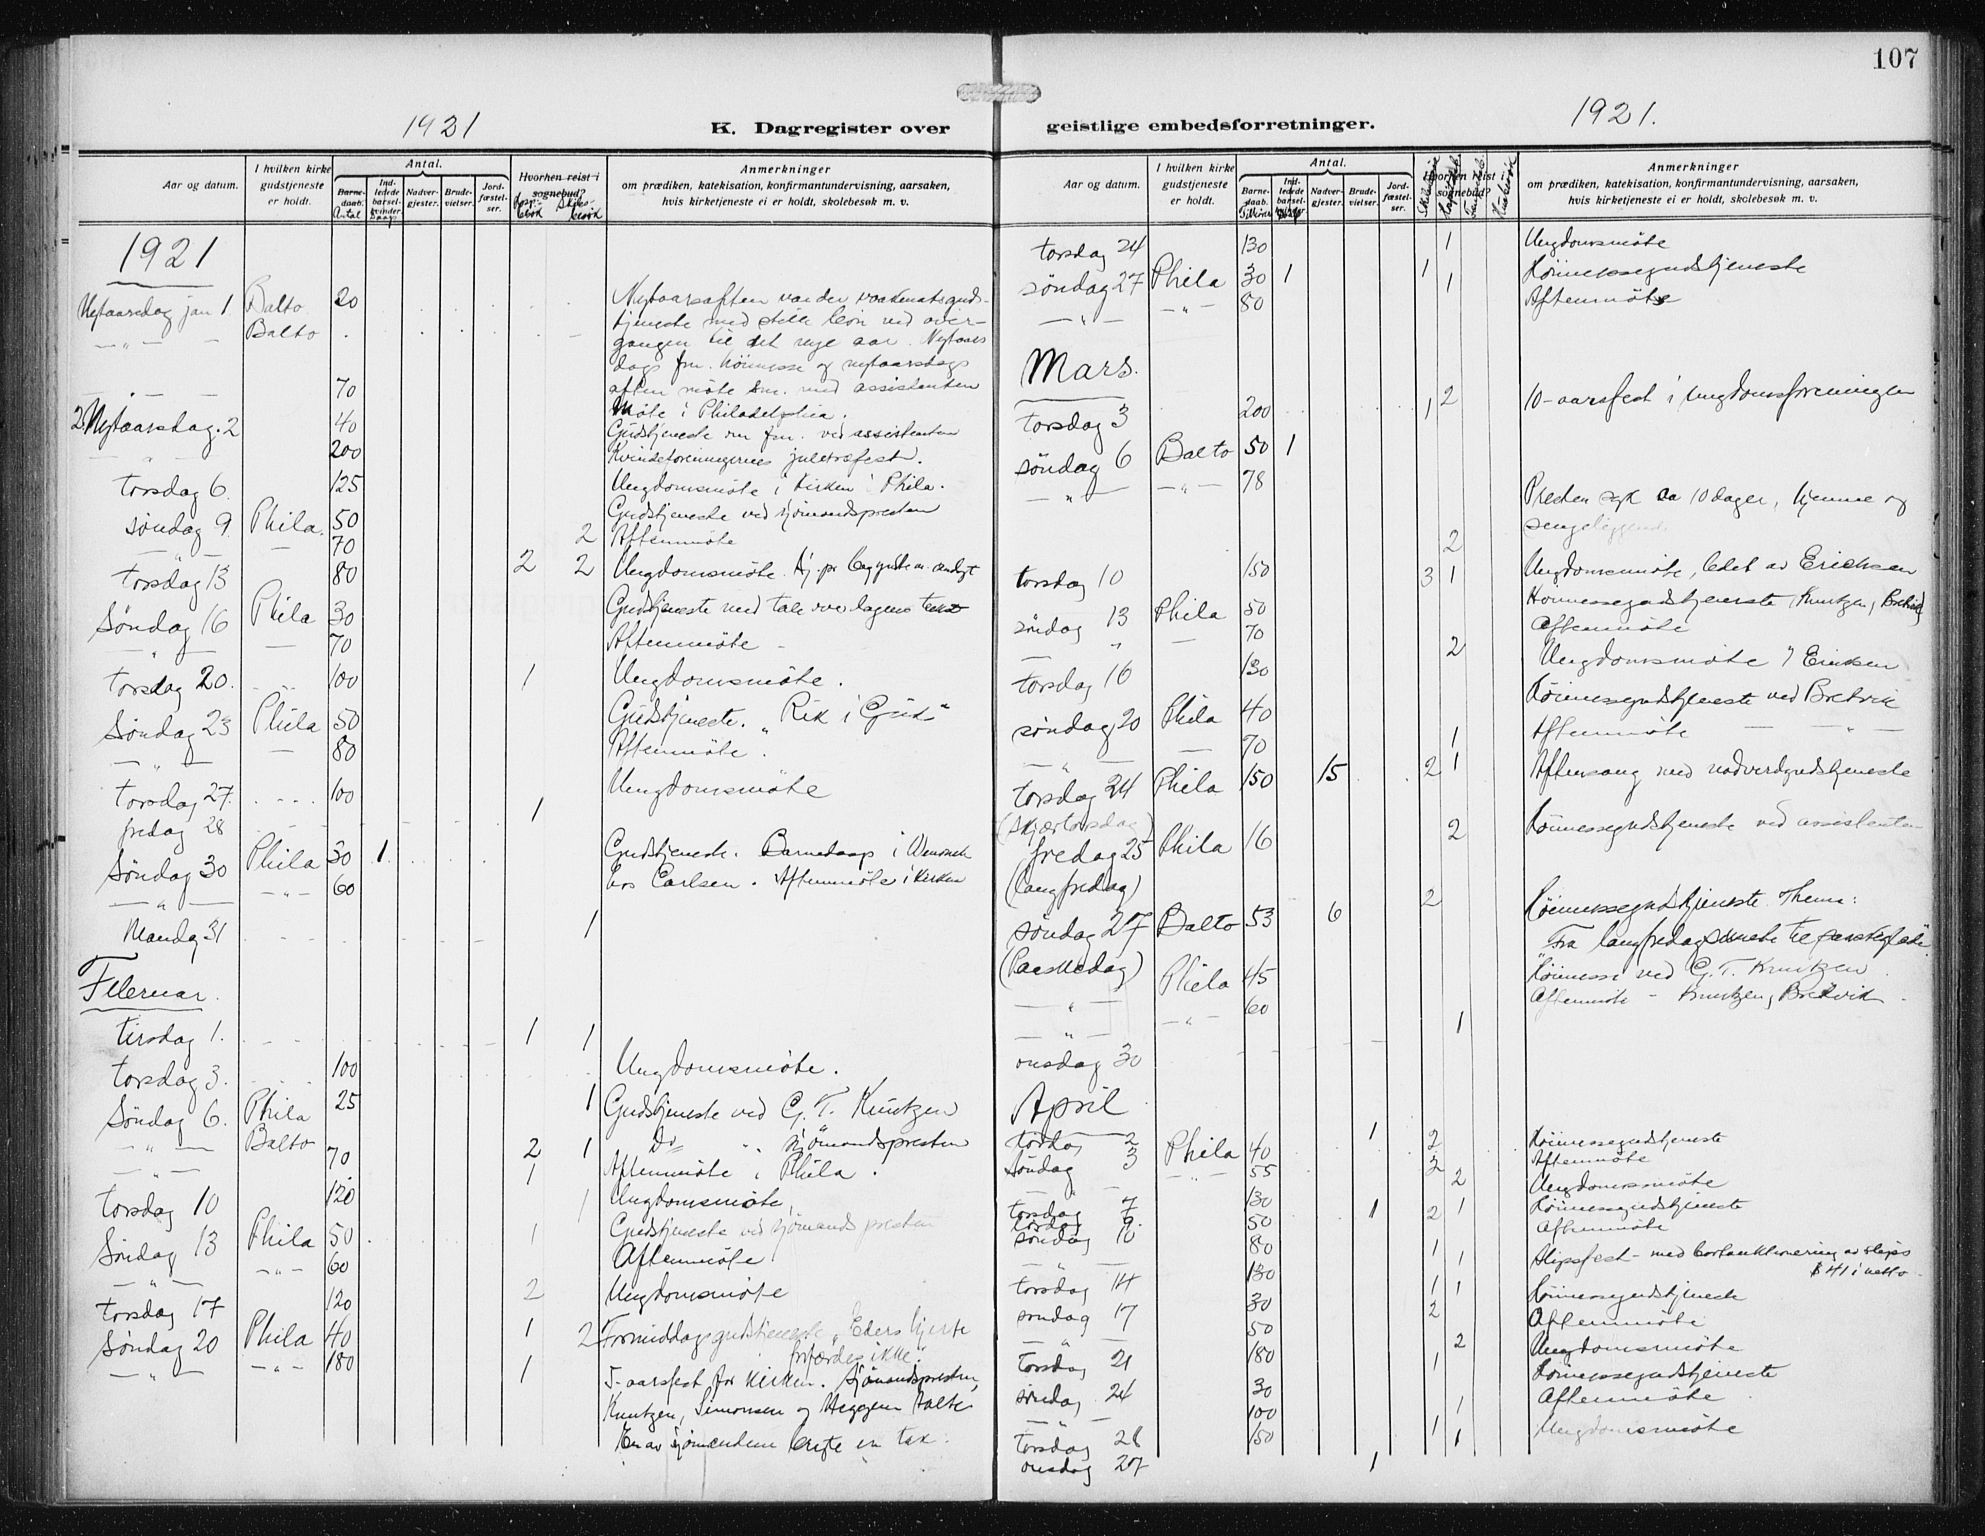 107
1921
K. Dagregister over
geistlige embedsforretninger.
1921.
Aar og datum.
I hvilken kirke gudstjeneste er holdt.
Antal.
Barnedaab. Antal
Indledede barselkvinder. Daap
Nadvergjester.
Brudevielser.
Jordfæstelser.
Hvorhen reist i sognebud?
Anmerkninger
om prædiken, katekisation, konfirmantundervisning, aarsaken,
hvis kirketjeneste ei er holdt, skolebesøk m. v.
1921
Nytaarsdag jan 1 Balto 20 Nytaarsaften var der vaakenatsguds-
— " — Balto tjeneste med stille bön ved over-
gangen til det nye aar. Nytaars
dags fm. höimesse og nytaarsdags
70 aften möte sm. med assistenten
Möte i Philadelphia.
2. Nytaarsdag. 2 40 Gudstjeneste om fm. ved assistenten
— " — 200 Kvindeforeningernes juletræfest.
torsdag 6. 125 Ungdomsmöte i kirken i Phila.
söndag 9. Phila. 50 Gudstjeneste ved sjömandspresten
— " — 70 2 Aftenmöte
torsdag 13 80 2 2 Ungdomsmöte.
Söndag 16 Phila 30 Gudstjeneste med tale over dagens tekst
— " — 70 Aftenmöte
torsdag 20. 100 1 Ungdomsmöte.
Söndag 23 Phila 50 Gudstjeneste. "Rik i Gud"
— " — 80 Aftenmöte.
torsdag 27. 100 Ungdomsmöte
fredag 28 1
Söndag 30 Phila 30 1. Gudstjeneste. Barnedaap i
— " — 60 hos Carlsen. Aftenmöte i kirken
Mandag 31 1
Februar.
tirsdag 1. 1 1
torsdag 3. 100 Ungdomsmöte.
Söndag 6. Phila 25 1 Gudstjeneste ved G. T. Knutzen
— " — Balto 2 1 Do " sjömandspresten
— " — 70 1 Aftenmöte i Phila.
torsdag 10 120 1 Ungdomsmöte
Söndag 13 Phila 50 1 Gudstjeneste ved sjömandspresten
— " — 60 Aftenmöte
torsdag 17 120 2 Ungdomsmöte
Söndag 20 Phila 40 1 2 Formiddagsgudstjeneste "Eders hjerte
forfærdes ikke"
— " — 180 1 5-aarsfest for kirken. Sjömandspresten,
Knutzen, Simonsen og Heggem talte
En av sjömændene bragte en tak.
Aar og datum.
I hvilken kirke gudstjeneste er holdt.
Antal.
Barnedaab.
Indledede barselkvinder.
Nadvergjester.
Brudevielser.
Jordfæstelser.
Hvorhen reist i sognebud?
Anmerkninger
om prædiken, katekisation, konfirmantundervisning, aarsaken,
hvis kirketjeneste ei er holdt, skolebesøk m. v.
torsdag 24 130 1 Ungdomsmöte
söndag 27 Phila 30 1 1 Höimessegudstjeneste
— " — — " — 80 1 Aftenmöte
Mars.
torsdag 3 200 1 2 10-aarsfest i ungdomsforeningen
söndag 6 Balto 50 1
— " — — " — 78 Presten syk ca 10 dager, hjemme og
sengeliggende
2
torsdag 10 150 3 1 Ungdomsmöte, ledet av Ericksen
söndag 13 Phila 50 Höimessegudstjeneste (Knutzen, Bredvik)
— " — 70 Aftenmöte
torsdag 16 130 2 Ungdomsmöte
söndag 20 Phila 40 Höimessegudstjeneste ved Bredvik
— " — 70 1 Aftenmöte — " —
torsdag 24 Phila 150 15 2 1 Aftensang med nadverdgudstjeneste
(Skjærtorsdag)
fredag 25 Phila 16 2 Höimessegudstjeneste ved assistenten
(langfredag)
söndag 27 Balto 53 6 2 Höimessegudstjeneste. Thema:
(Paaskedag) Fra langfredag
— " — Phila 45 Höimesse ved G. T. Knutzen
— " — — " — 60 Aftenmöte - Knutzen, Bredvik
1
onsdag 30
April
lördag 2 1 2
söndag 3 Phila 40 2 Höimessegudstjeneste
— " — — " — 55 Aftenmöte
torsdag 7 130 2 Ungdomsmöte
lördag 9. 1
söndag 10 50 2 1 Höimessegudstjeneste
— " — 80 Aftenmöte
torsdag 14 130 1 1 Slipsfest - med bortauktionering av slips
$41 i netto
söndag 17 30 1 1 Höimessegudstjeneste
— " — 50 2 Aftenmöte
torsdag 21 180 2 Ungdomsmöte
söndag 24 30 1 Höimessegudstjeneste
— " — 100 1 Aftenmöte
torsdag 28 150 1 1 Ungdomsmöte
onsdag 27 1